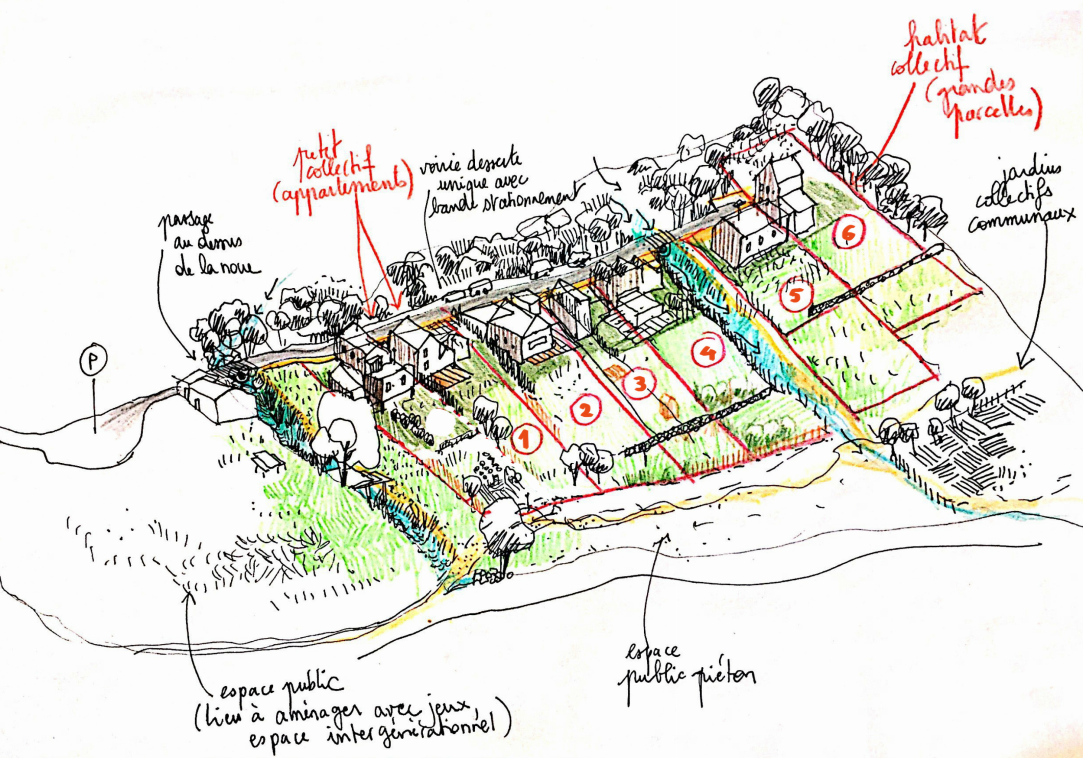 habitat
collectif
(grandes
parcelles)
petit
collectif
(appartements)
voirie desserte
unique avec
bande stationnement
jardins
collectifs
communaux
passage
au dessus
de la noue
P
6
5
4
3
2
1
espace
public piéton
espace public
(lieu à aménager avec jeux,
espace intergénérationnel)